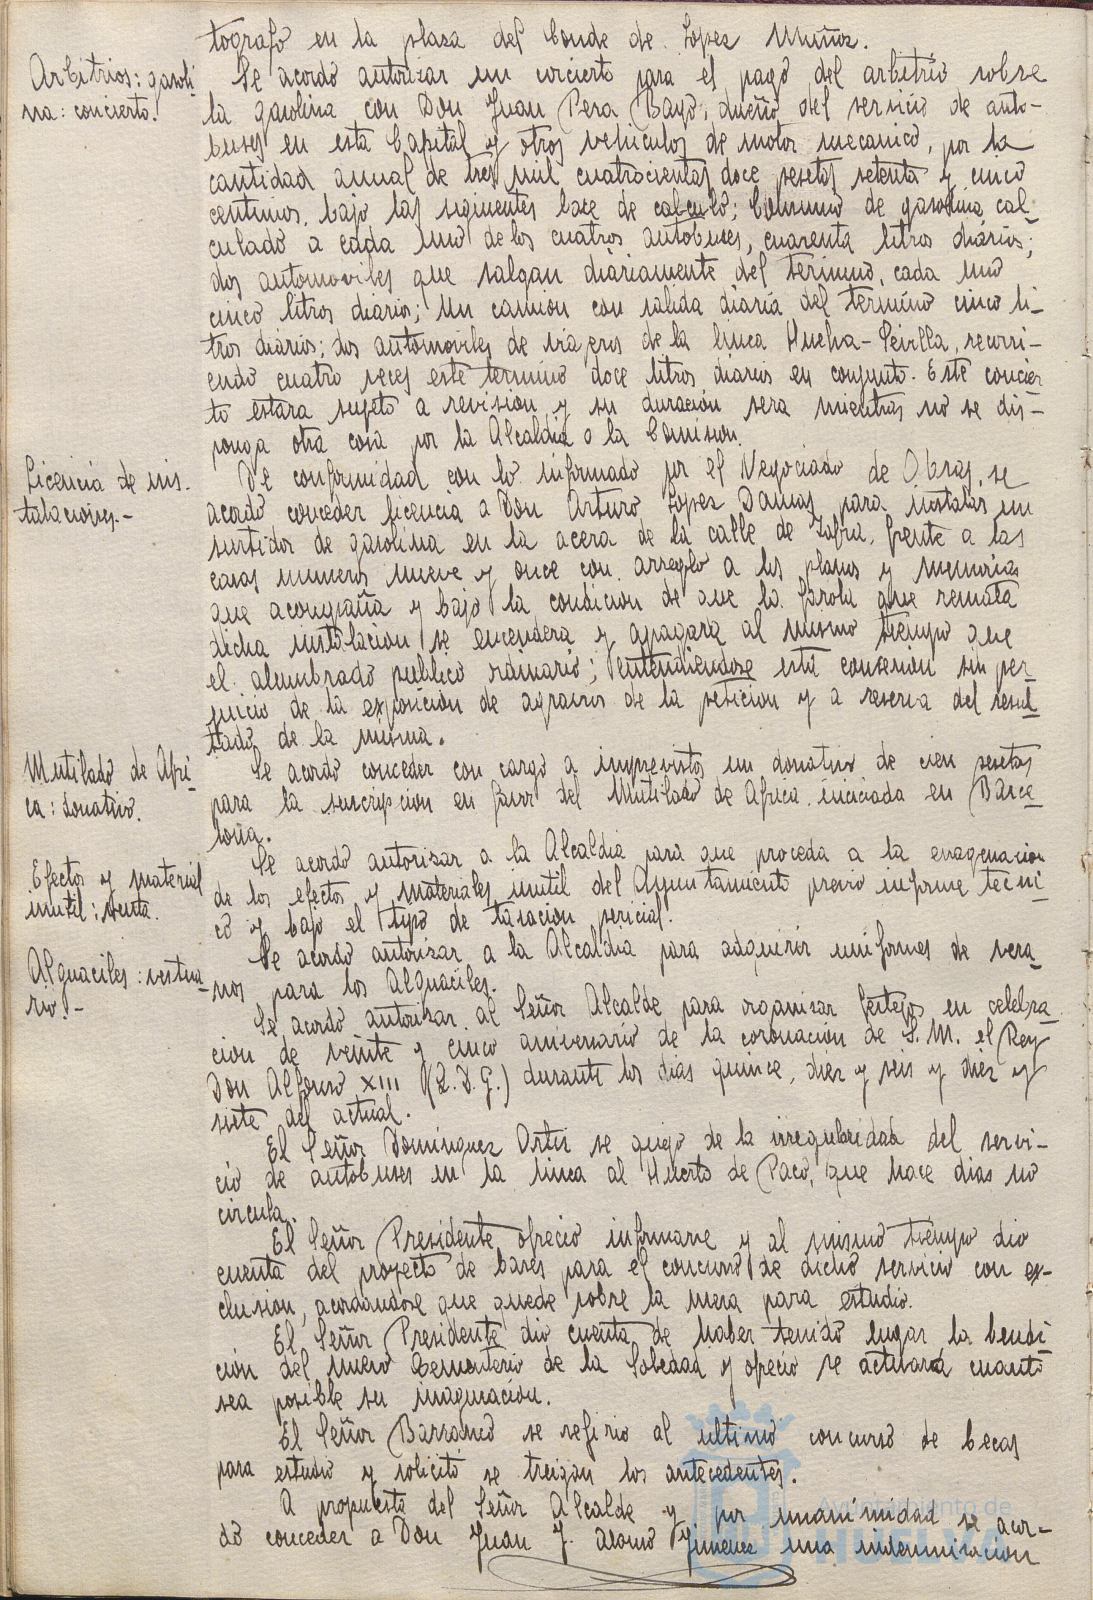 tografo en la plaza del Conde de Lopez Muñoz.
Arbitrios: gasoli-
na: concierto.
Se acordó autorizar un concierto para el pago del arbitrio sobre
la gasolina con Don Juan Pera Bayo, dueño del servicio de auto-
buses en esta Capital y otros vehiculos de motor mecanico, por la
cantidad anual de tres mil cuatrocientas doce pesetas setenta y cinco
centimos, bajo las siguientes base de calculo; Consumo de gasolina cal-
culado a cada uno de los cuatros autobuses, cuarenta litros diarios;
dos automoviles que salgan diariamente del termino, cada uno
cinco litros diarios; Un camion con salida diaria del termino cinco li-
tros diarios; dos automoviles de viageros de la linea Huelva-Sevilla, recorri-
endo cuatro veces este termino doce litros diarios en conjunto. Este concier-
to estara sujeto a revision y su duración sera mientras no se dis-
ponga otra cosa por la Alcaldia o la Comision.
Licencia de ins-
talaciones.-
De conformidad con lo informado por el Negociado de Obras, se
acordó conceder licencia a Don Arturo Lopez Damas para instalar un
surtidor de gasolina en la acera de la calle de Zafra, frente a las
casas numeros nueve y once con arreglo a los planos y memoria
que acompaña y bajo la condicion de que la farola que remata
dicha instalacion se encendera y apagara al mismo tiempo que
el alumbrado publico ordinario; entendiendose esta concesion sin per-
juicio de la exposición de agravios de la peticion y a reserva del resul-
tado de la misma.
Mutilado de Afri-
ca: donativo.
Se acordó conceder con cargo a imprevistos un donativo de cien pesetas
para la suscripcion en favor del Mutilado de Africa iniciada en Barce-
lona.
Efectos y material
inutil: venta.
Se acordó autorizar a la Alcaldia para que proceda a la enagenacion
de los efectos y materiales inutil del Ayuntamiento previo informe tecni-
co y bajo el tipo de tasacion pericial.
Alguaciles: vestua-
rio.-
Se acordó autorizar a la Alcaldia para adquirir uniformes de vera-
nos para los Alguaciles.
Se acordó autorizar al Señor Alcalde para organizar festejos en celebra-
cion de veinte y cinco aniversario de la coronación de S. M. el Rey
Don Alfonso XIII (Q. D. G.) durante los dias quince, diez y seis y diez y
siete del actual.
El Señor Dominguez Ortiz se quejo de la irregularidad del servi-
cio de autobuses en la linea al Huerto de Paco, que hace dias no
circula.
El Señor Presidente ofrecio informarse y al mismo tiempo dio
cuenta del proyecto de bases para el concurso de dicho servicio con ex-
clusion, acordandose que quede sobre la mesa para estudio.
El Señor Presidente dio cuenta de haber tenido lugar la bendi-
ción del nuevo Cementerio de la Soledad y ofrecio se activará cuanto
sea posible su inaguración.
El Señor Barranco se refirio al ultimo concurso de becas
para estudio y solicitó se traigan los antecedentes.
A propuesta del Señor Alcalde y por unanimidad se acor-
dó conceder a Don Juan J. Alonso Jimenez una indemnización
Ayuntamiento de
HUELVA